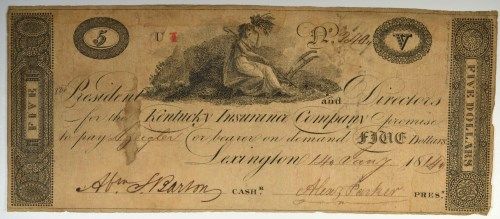 5 U I No. V
FIVE
FIVE DOLLARS
The President and Directors
for the Kentucky Insurance Company promise
to pay or bearer on demand FIVE Dollars
Lexington 14 Jany 1814
Abm S Barton CASHr. Alexr Parker PREST.